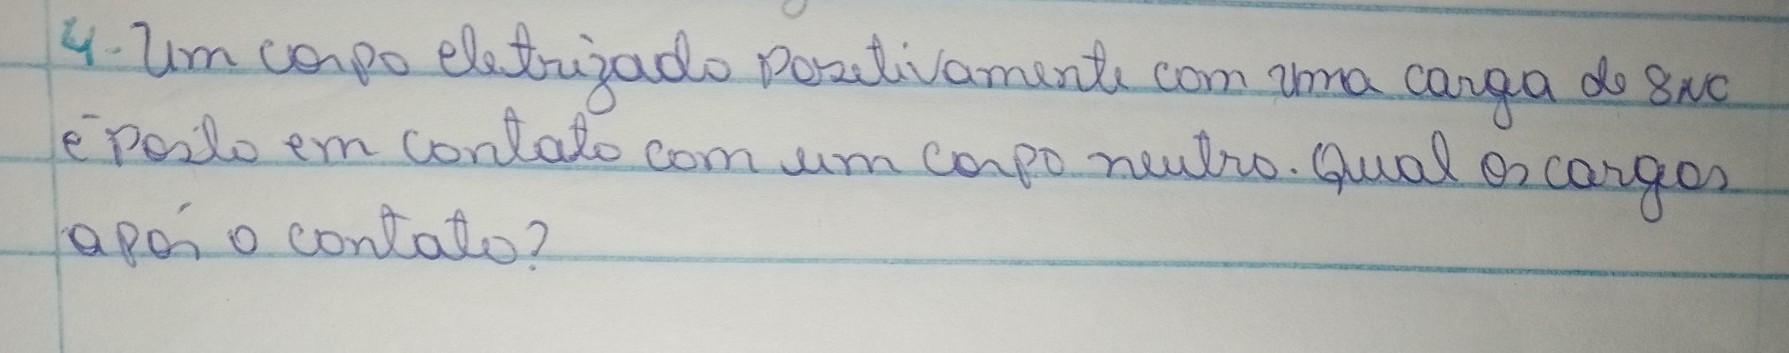 4- Um corpo eletrizado positivamente com uma carga de 8NC
é posto em contato com um corpo neutro. Qual as cargas
após o contato?